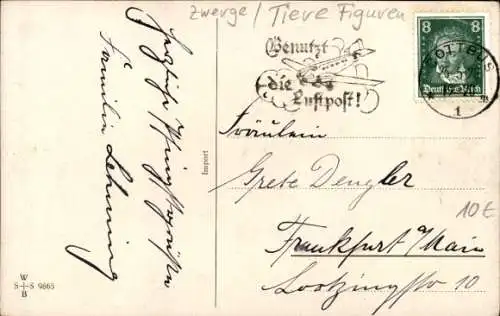 Zwerge / Tiere Figuren
Benutzt
die
Luftpost!
8 8
Deutsches Reich
COTTBUS
1
Herzliche Pfingstgrüße
Familie Lehning
Import
Fräulein
Grete Dengler
Frankfurt a/Main
Lortzingstr 10
10€
W
S S 9865
B